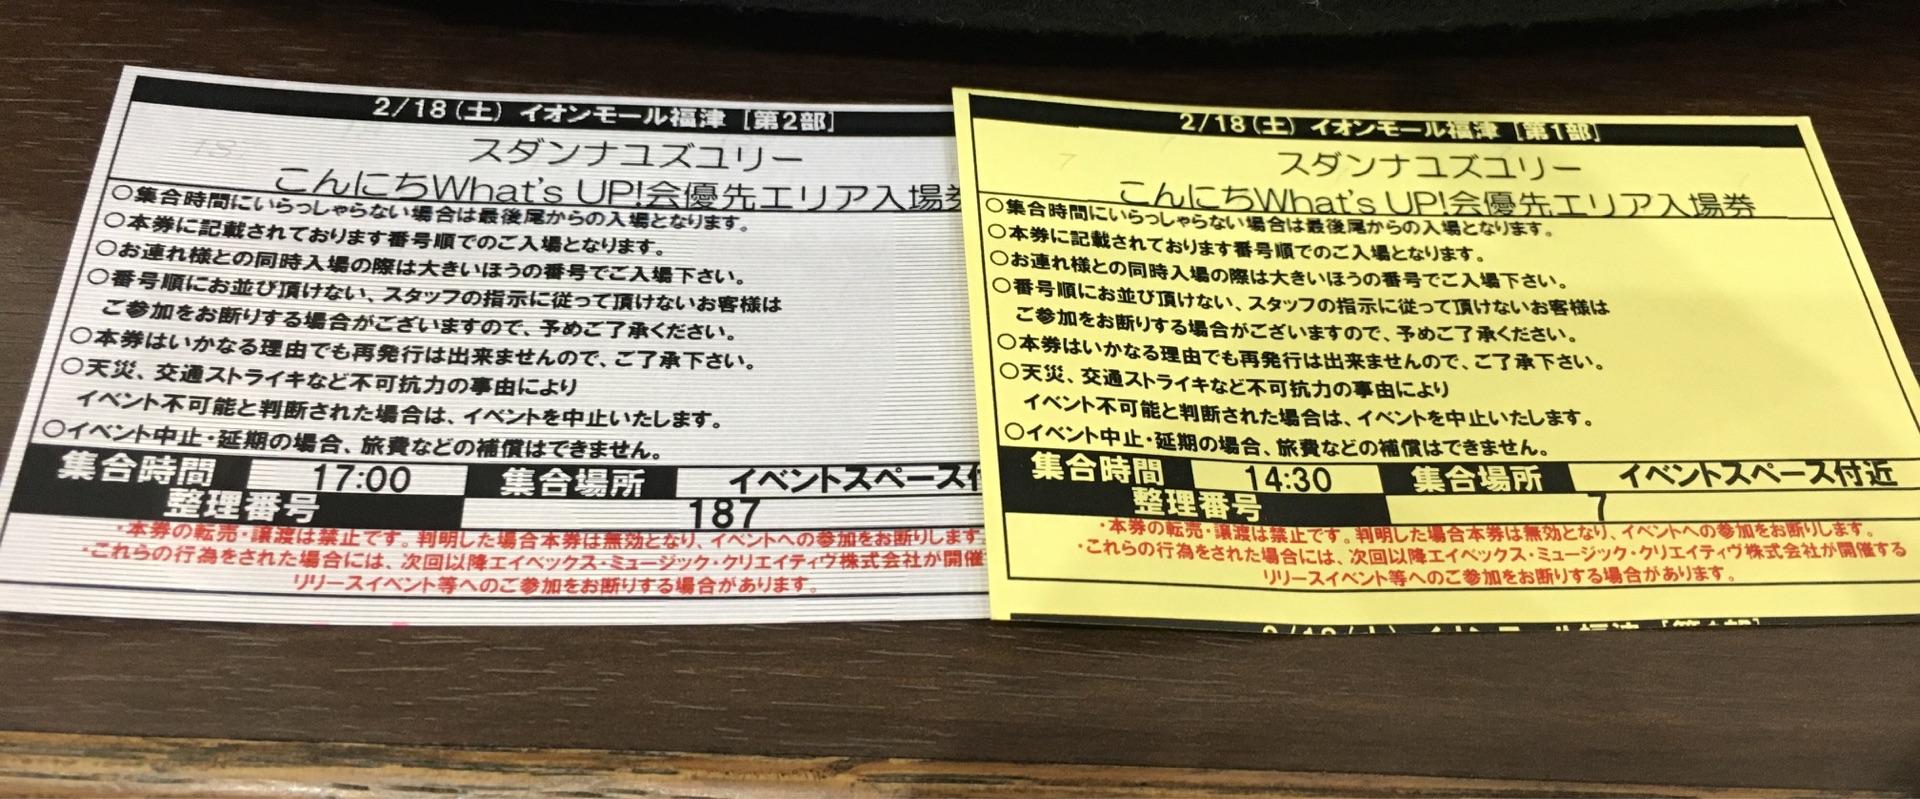 2/18(土) イオンモール福津 [第2部]
スダンナユズユリー
こんにちWhat's UP!会優先エリア入場券
○集合時間にいらっしゃらない場合は最後尾からの入場となります。
○本券に記載されております番号順でのご入場となります。
○お連れ様との同時入場の際は大きいほうの番号でご入場下さい。
○番号順にお並び頂けない、スタッフの指示に従って頂けないお客様は
ご参加をお断りする場合がございますので、予めご了承ください。
○本券はいかなる理由でも再発行は出来ませんので、ご了承下さい。
○天災、交通ストライキなど不可抗力の事由により
イベント不可能と判断された場合は、イベントを中止いたします。
○イベント中止・延期の場合、旅費などの補償はできません。
集合時間 17:00 集合場所 イベントスペース付
整理番号 187
・本券の転売・譲渡は禁止です。判明した場合本券は無効となり、イベントへの参加をお断りします。
・これらの行為をされた場合には、次回以降エイベックス・ミュージック・クリエイティヴ株式会社が開催
リリースイベント等へのご参加をお断りする場合があります。
2/18(土) イオンモール福津 [第1部]
スダンナユズユリー
こんにちWhat's UP!会優先エリア入場券
○集合時間にいらっしゃらない場合は最後尾からの入場となります。
○本券に記載されております番号順でのご入場となります。
○お連れ様との同時入場の際は大きいほうの番号でご入場下さい。
○番号順にお並び頂けない、スタッフの指示に従って頂けないお客様は
ご参加をお断りする場合がございますので、予めご了承ください。
○本券はいかなる理由でも再発行は出来ませんので、ご了承下さい。
○天災、交通ストライキなど不可抗力の事由により
イベント不可能と判断された場合は、イベントを中止いたします。
○イベント中止・延期の場合、旅費などの補償はできません。
集合時間 14:30 集合場所 イベントスペース付近
整理番号 7
・本券の転売・譲渡は禁止です。判明した場合本券は無効となり、イベントへの参加をお断りします。
・これらの行為をされた場合には、次回以降エイベックス・ミュージック・クリエイティヴ株式会社が開催する
リリースイベント等へのご参加をお断りする場合があります。